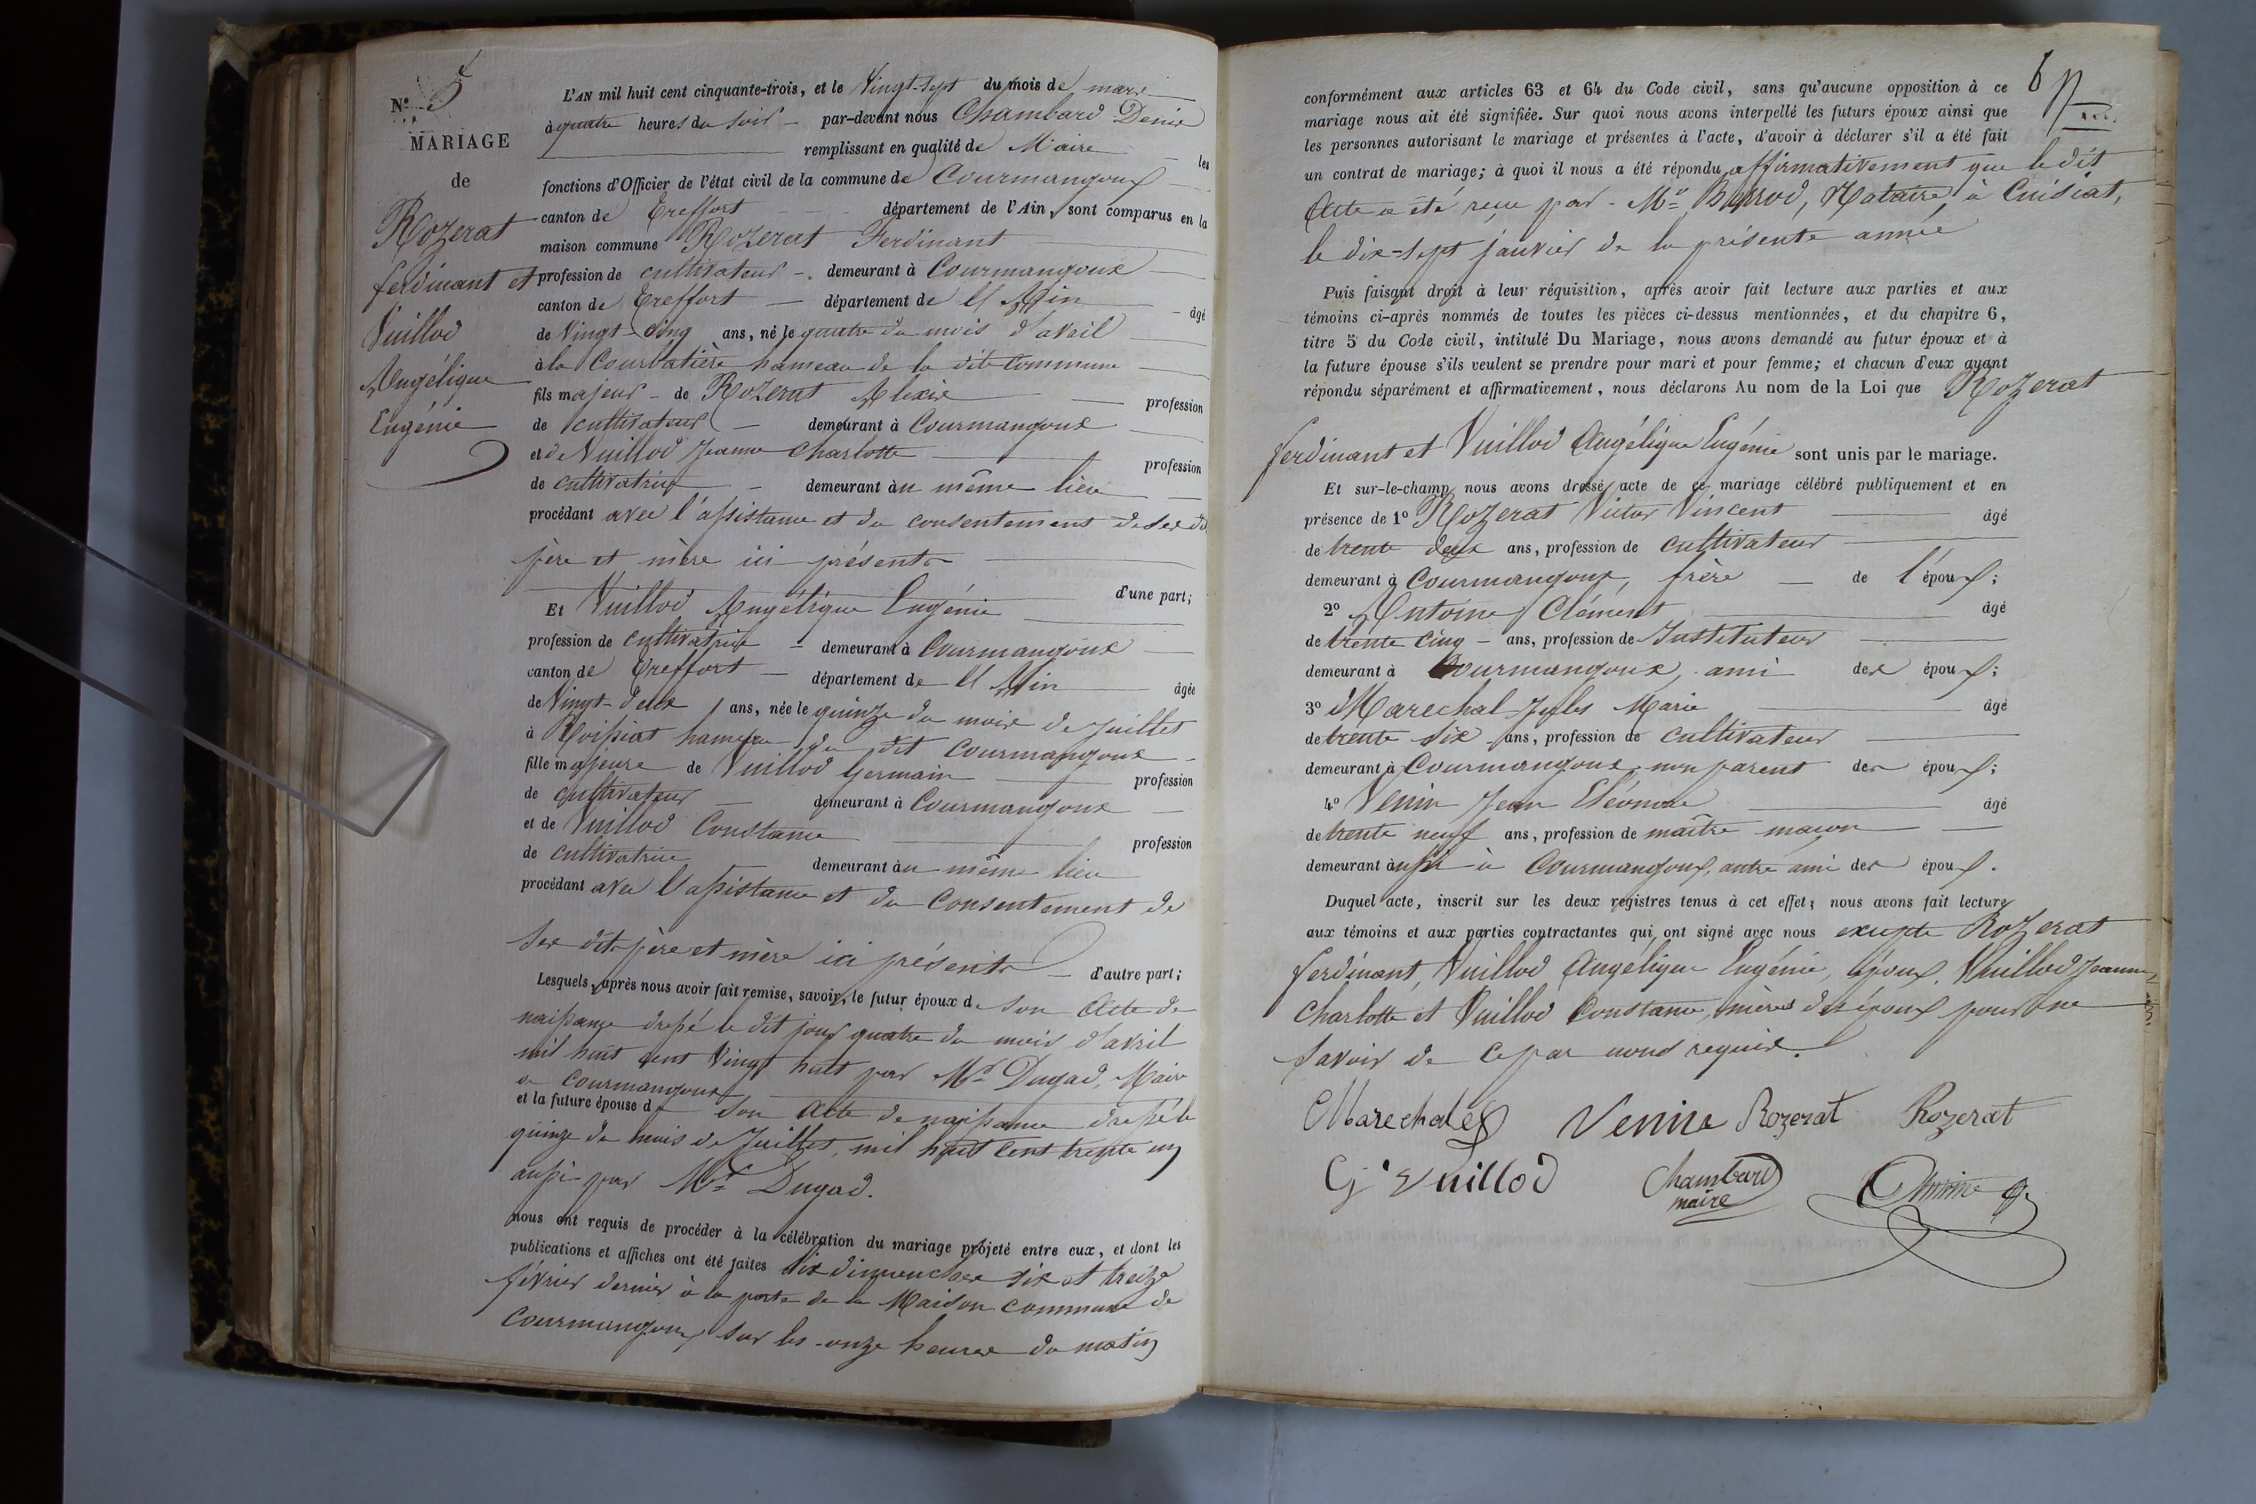 N° 5
MARIAGE
de
Rozerat
ferdinant et
Vuillod
Angélique
Eugénie
L'AN mil huit cent cinquante-trois, et le Vingt-sept du mois de mars
à quatre heures du soir par-devant nous Chambard Denis
remplissant en qualité de Maire les
fonctions d'Officier de l'état civil de la commune de Courmangoux
canton de Treffort département de l'Ain, sont comparus en la
maison commune Rozerat Ferdinant
profession de cultivateur demeurant à Courmangoux
canton de Treffort département de l'Ain âgé
de Vingt-Cinq ans, né le quatre du mois d'avril
à la Courbatière hameau de la dite Commune
fils majeur de Rozerat Alexis profession
de cultivateur demeurant à Courmangoux
et de Vuillod Jeanne Charlotte profession
de cultivatrice demeurant au même lieu
procédant avec l'assistance et du consentement de ses dts
père et mère ici présents
d'une part;
Et Vuillod Angélique Eugénie
profession de cultivatrice demeurant à Courmangoux
canton de Treffort département de l'Ain âgée
de Vingt-deux ans, née le quinze du mois de Juillet
à Roissiat hameau du dit Courmangoux
fille majeure de Vuillod Germain profession
de cultivateur demeurant à Courmangoux
et de Vuillod Constance profession
de cultivatrice demeurant au même lieu
procédant avec l'assistance et du Consentement de
ses dits père et mère ici présents d'autre part;
Lesquels, après nous avoir fait remise, savoir, le futur époux de son Acte de
naissance dressé le dit jour quatre du mois d'avril
mil huit cent Vingt huit par Mr Dugad, Maire
de Courmangoux
et la future épouse de son Acte de naissance dressé le
quinze du mois de Juillet, mil huit cent trente un
aussi par Mr Dugad.
nous ont requis de procéder à la célébration du mariage projeté entre eux, et dont les
publications et affiches ont été faites les dimanches six et treize
février dernier à la porte de la Maison commune de
Courmangoux sur les onze heures du matin
6
conformément aux articles 63 et 64 du Code civil, sans qu'aucune opposition à ce
mariage nous ait été signifiée. Sur quoi nous avons interpellé les futurs époux ainsi que
les personnes autorisant le mariage et présentes à l'acte, d'avoir à déclarer s'il a été fait
un contrat de mariage; à quoi il nous a été répondu affirmativement que le dit
Acte a été reçu par Me Notaire à Cuisiat,
le dix-sept janvier de la présente année
Puis faisant droit à leur réquisition, après avoir fait lecture aux parties et aux
témoins ci-après nommés de toutes les pièces ci-dessus mentionnées, et du chapitre 6,
titre 5 du Code civil, intitulé Du Mariage, nous avons demandé au futur époux et à
la future épouse s'ils veulent se prendre pour mari et pour femme; et chacun d'eux ayant
répondu séparément et affirmativement, nous déclarons Au nom de la Loi que Rozerat
ferdinant et Vuillod Angélique Eugénie sont unis par le mariage.
Et sur-le-champ nous avons dressé acte de ce mariage célébré publiquement et en
présence de 1° Rozerat Victor Vincent âgé
de trente deux ans, profession de cultivateur
demeurant à Courmangoux, frère de l'époux;
2° Antoine Clément âgé
de trente cinq ans, profession de Instituteur
demeurant à Courmangoux, ami des époux;
3° Marechal Jules Marie âgé
de trente six ans, profession de cultivateur
demeurant à Courmangoux, non parent des époux;
4° Venin Jean Eléonore âgé
de trente neuf ans, profession de maître maçon
demeurant aussi à Courmangoux, autre ami des époux.
Duquel acte, inscrit sur les deux registres tenus à cet effet; nous avons fait lecture
aux témoins et aux parties contractantes qui ont signé avec nous excepté Rozerat
ferdinant, Vuillod Angélique Eugénie, époux, Vuillod Jeanne
Charlotte et Vuillod Constance, mères des époux pour ne
savoir de ce par nous requis.
Marechal Venin Rozerat Rozerat
G. Vuillod Chambard
maire Antoine